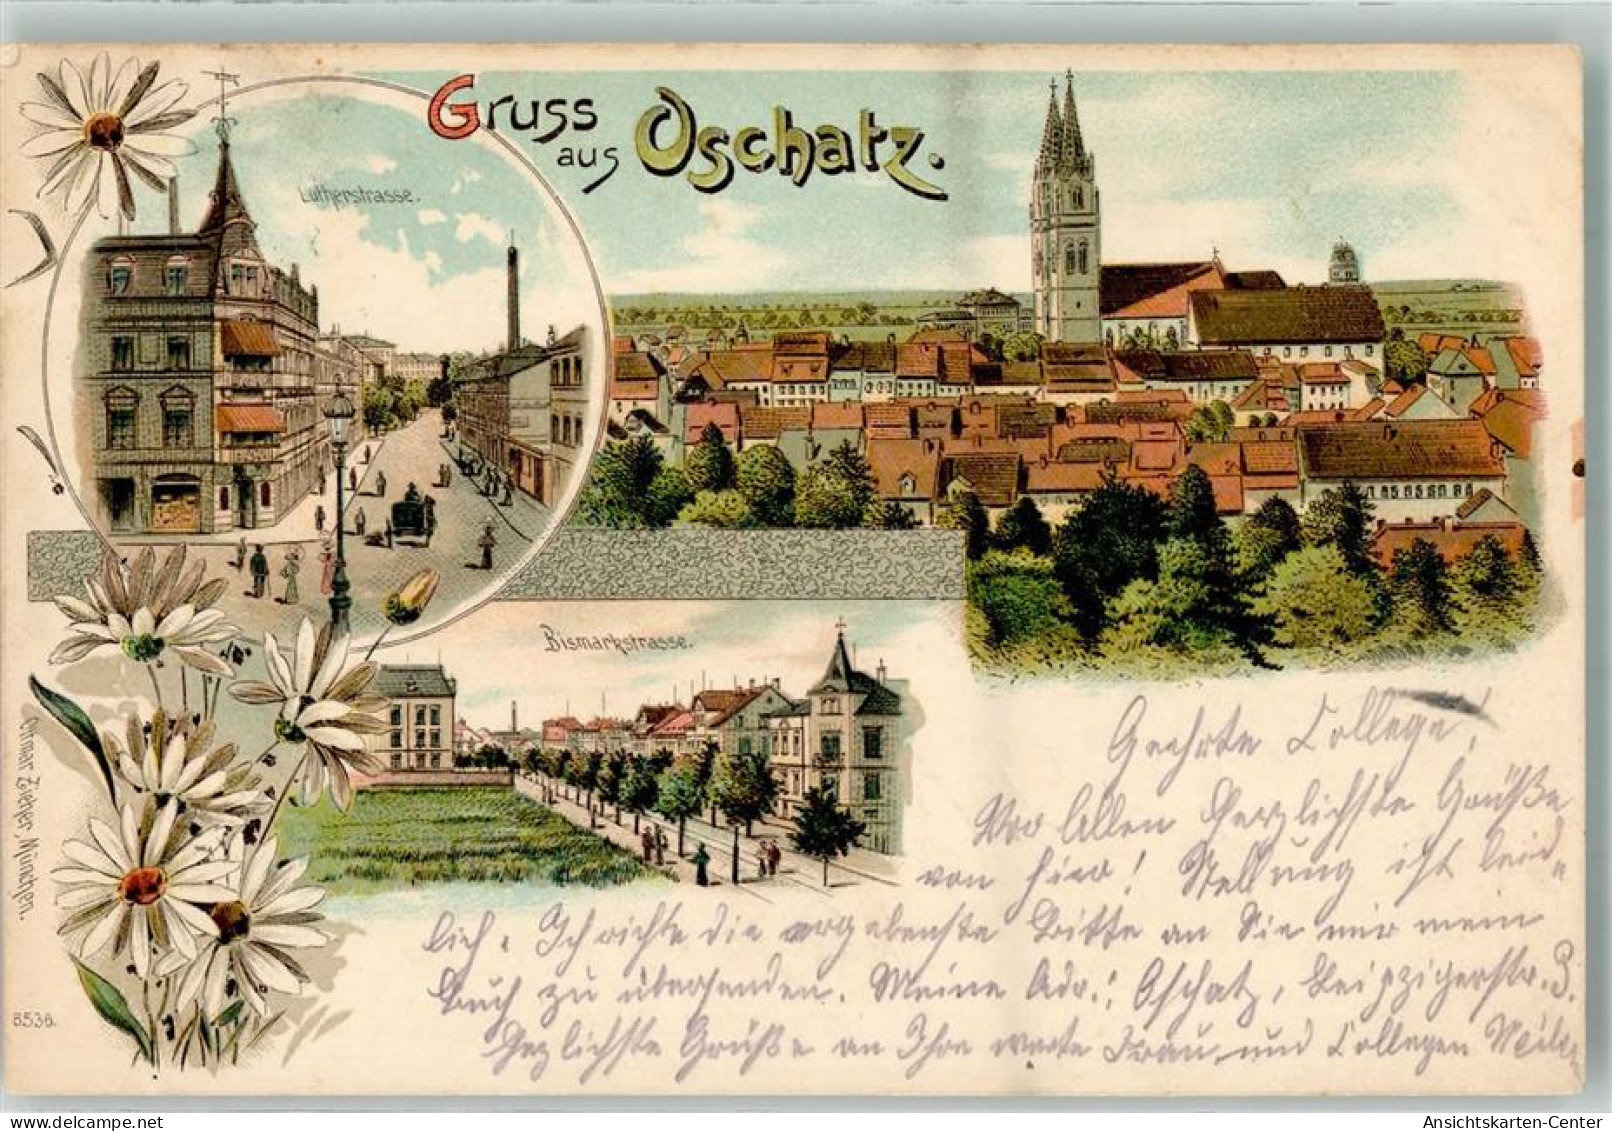 Gruss
aus Oschatz.
Lutherstrasse.
Bismarkstrasse.
Ottmar Zieher, München.
8536.
Geehrte College!
Vor Allen herzlichste Grüße
von hier! Stellung ist leid-
lich. Ich richte die ergebenste Bitte an Sie mir mein
Buch zu übersenden. Meine Adr.: Oschatz, Leipzigerstr. 3.
Herzlichste Grüße an Ihre werte Frau und Collegen
Ansichtskarten-Center